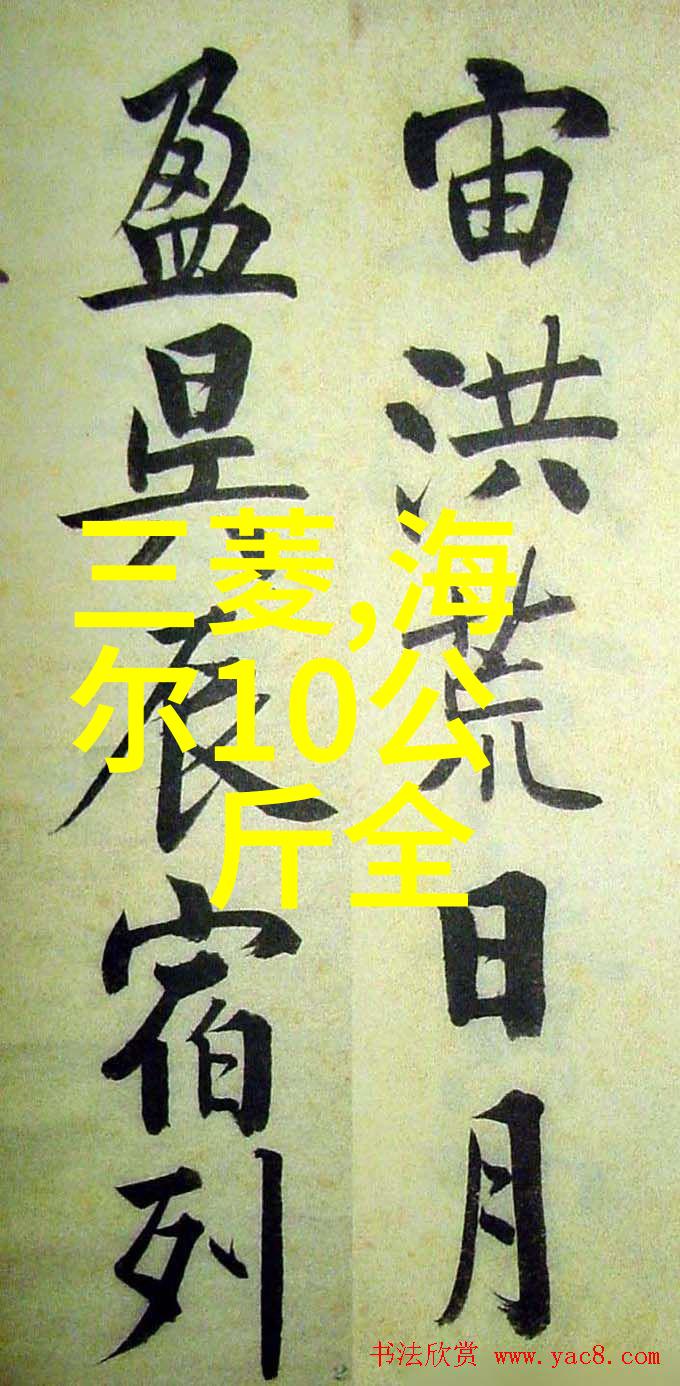 宙洪荒日月
盈昃辰宿列
三菱,海
尔10公
斤全
书法欣赏 www.yac8.com